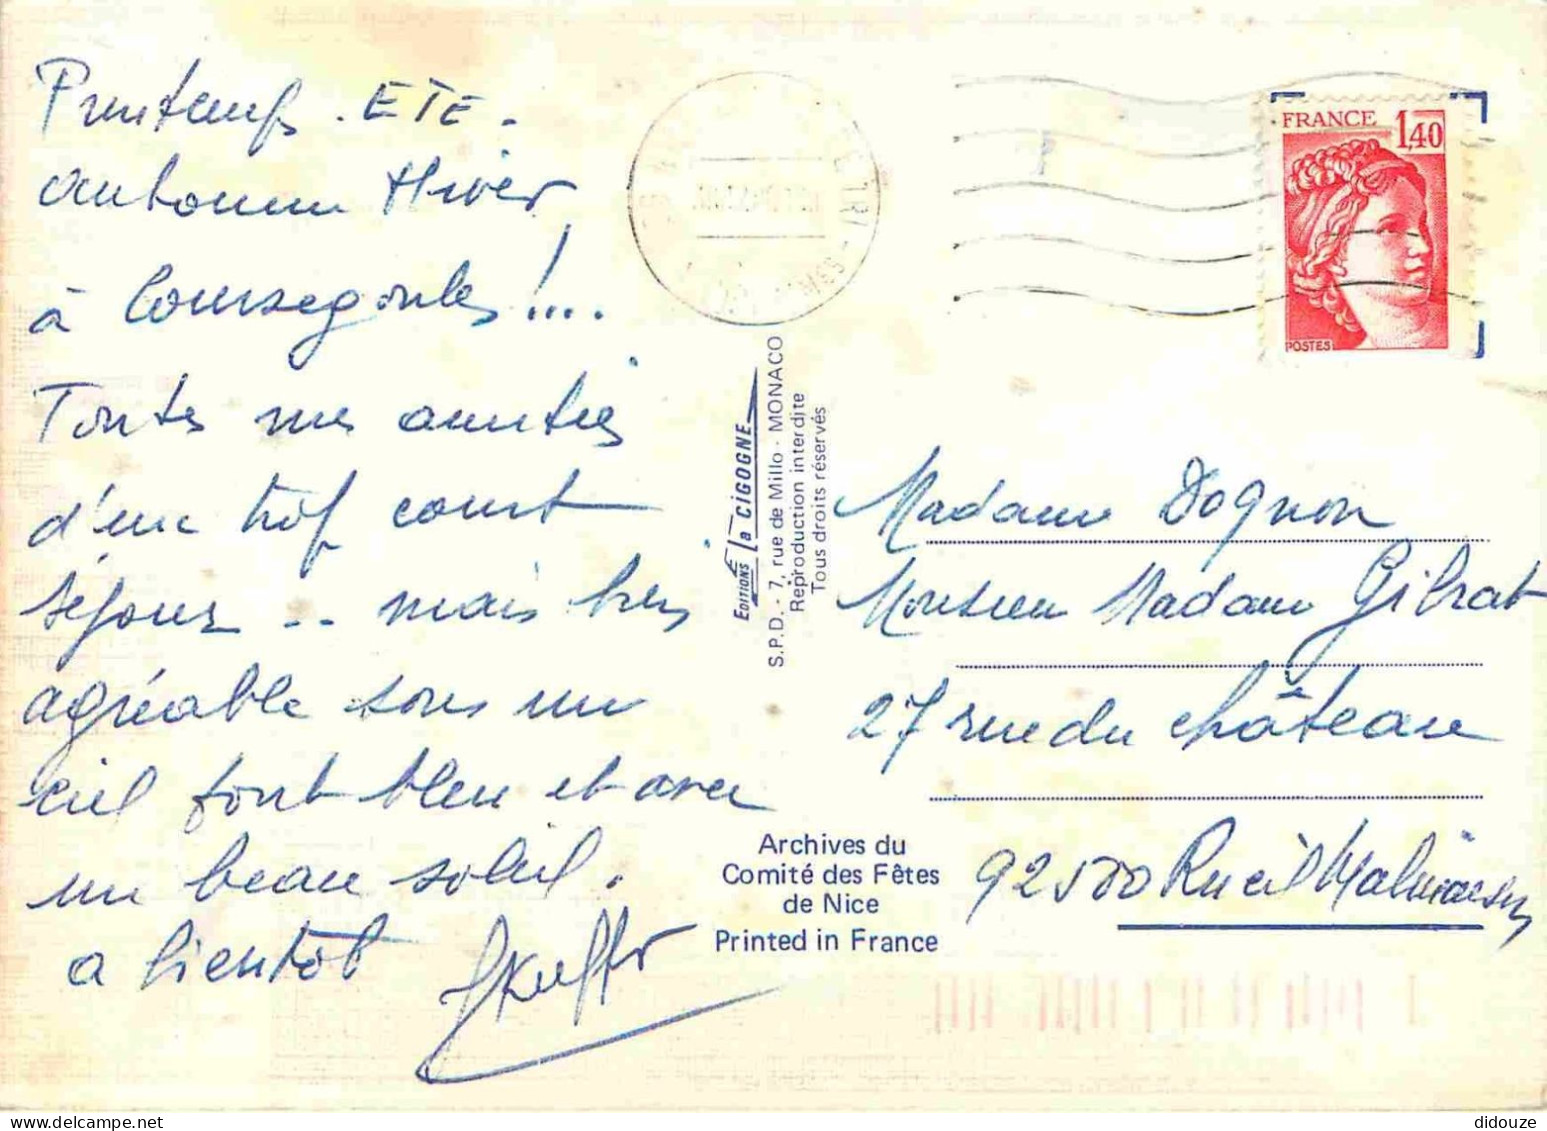 Printemps . ETE .
automne Hiver
à Coursegoules !....
Toutes mes amitiés
d'un trop court
séjour .. mais très
agréable sous un
ciel tout bleu et avec
un beau soleil.
a bientôt
FRANCE 1,40
POSTES
EDITIONS la CIGOGNE
S.P.D. - 7, rue de Millo - MONACO
Reproduction interdite
Tous droits réservés
Madame Dognon
Monsieur Madame Gibrat
27 rue du château
92500 Rueil Malmaison
Archives du
Comité des Fêtes
de Nice
Printed in France
didouze